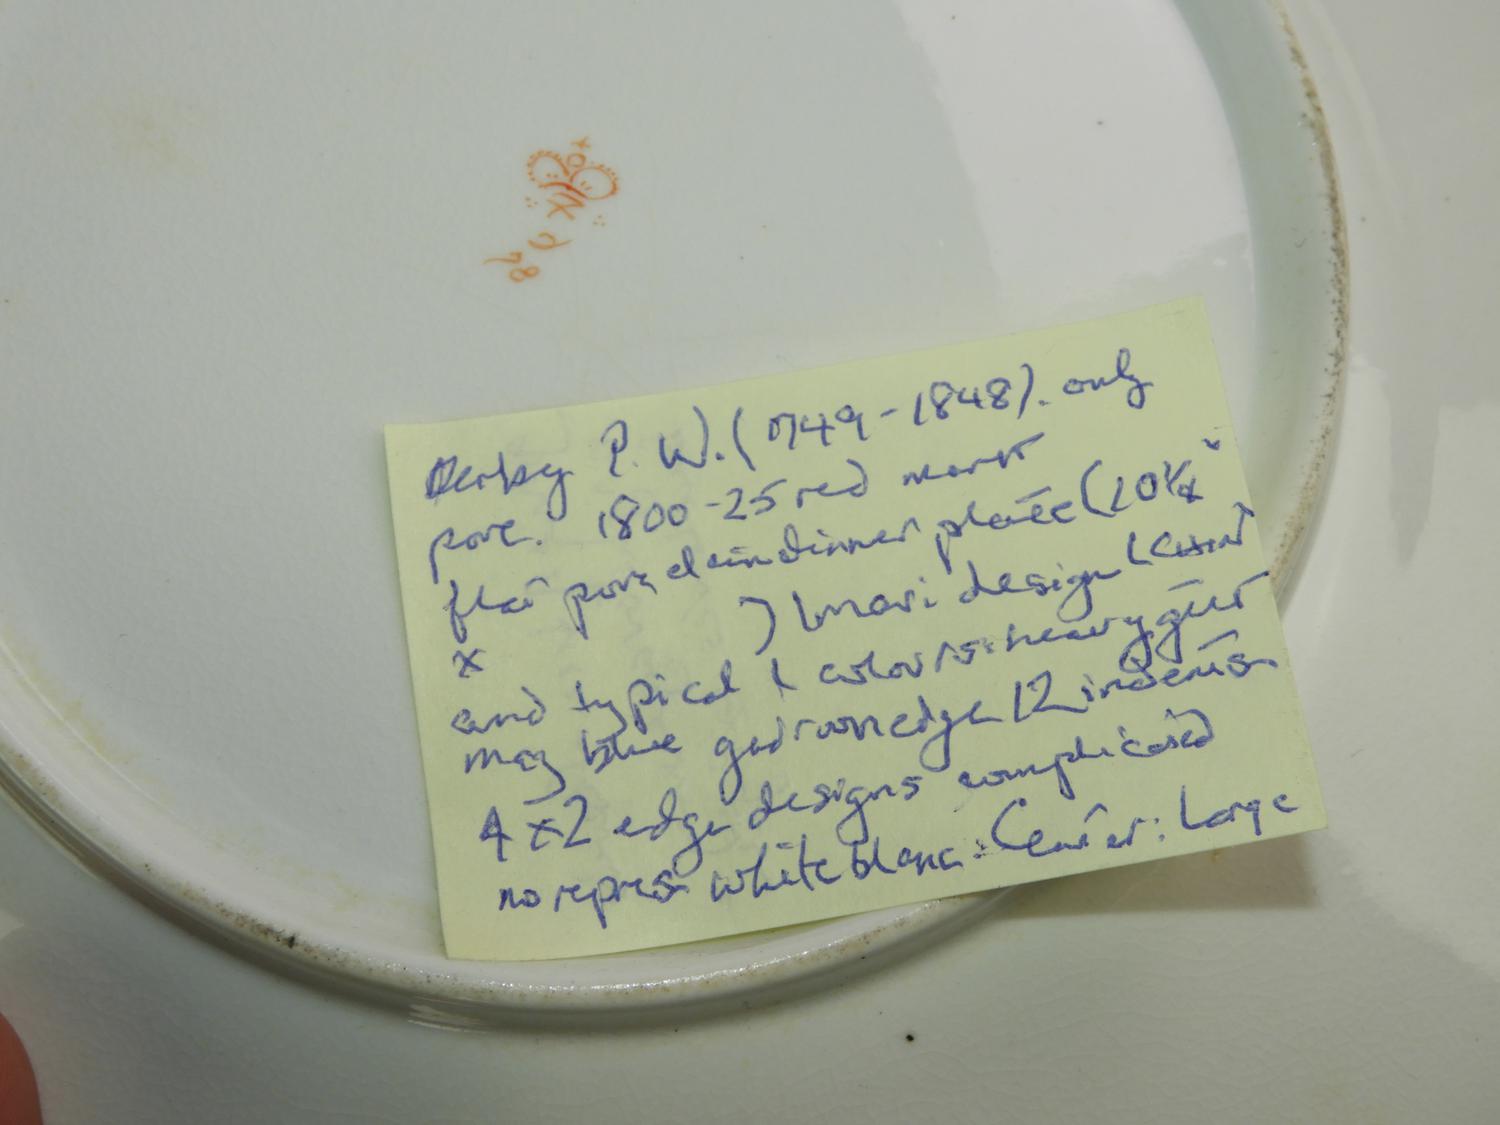 78
Derby P.W. (1749-1848). only
porc. 1800-25 red mark
flat porcelain dinner plate (10 1/4"
x ) Imari design (
and typical I colours: heavy gilt
may blue gadroon edge 12 indents
4 x 2 edge designs complicated
no repress white blanc: Center: Large